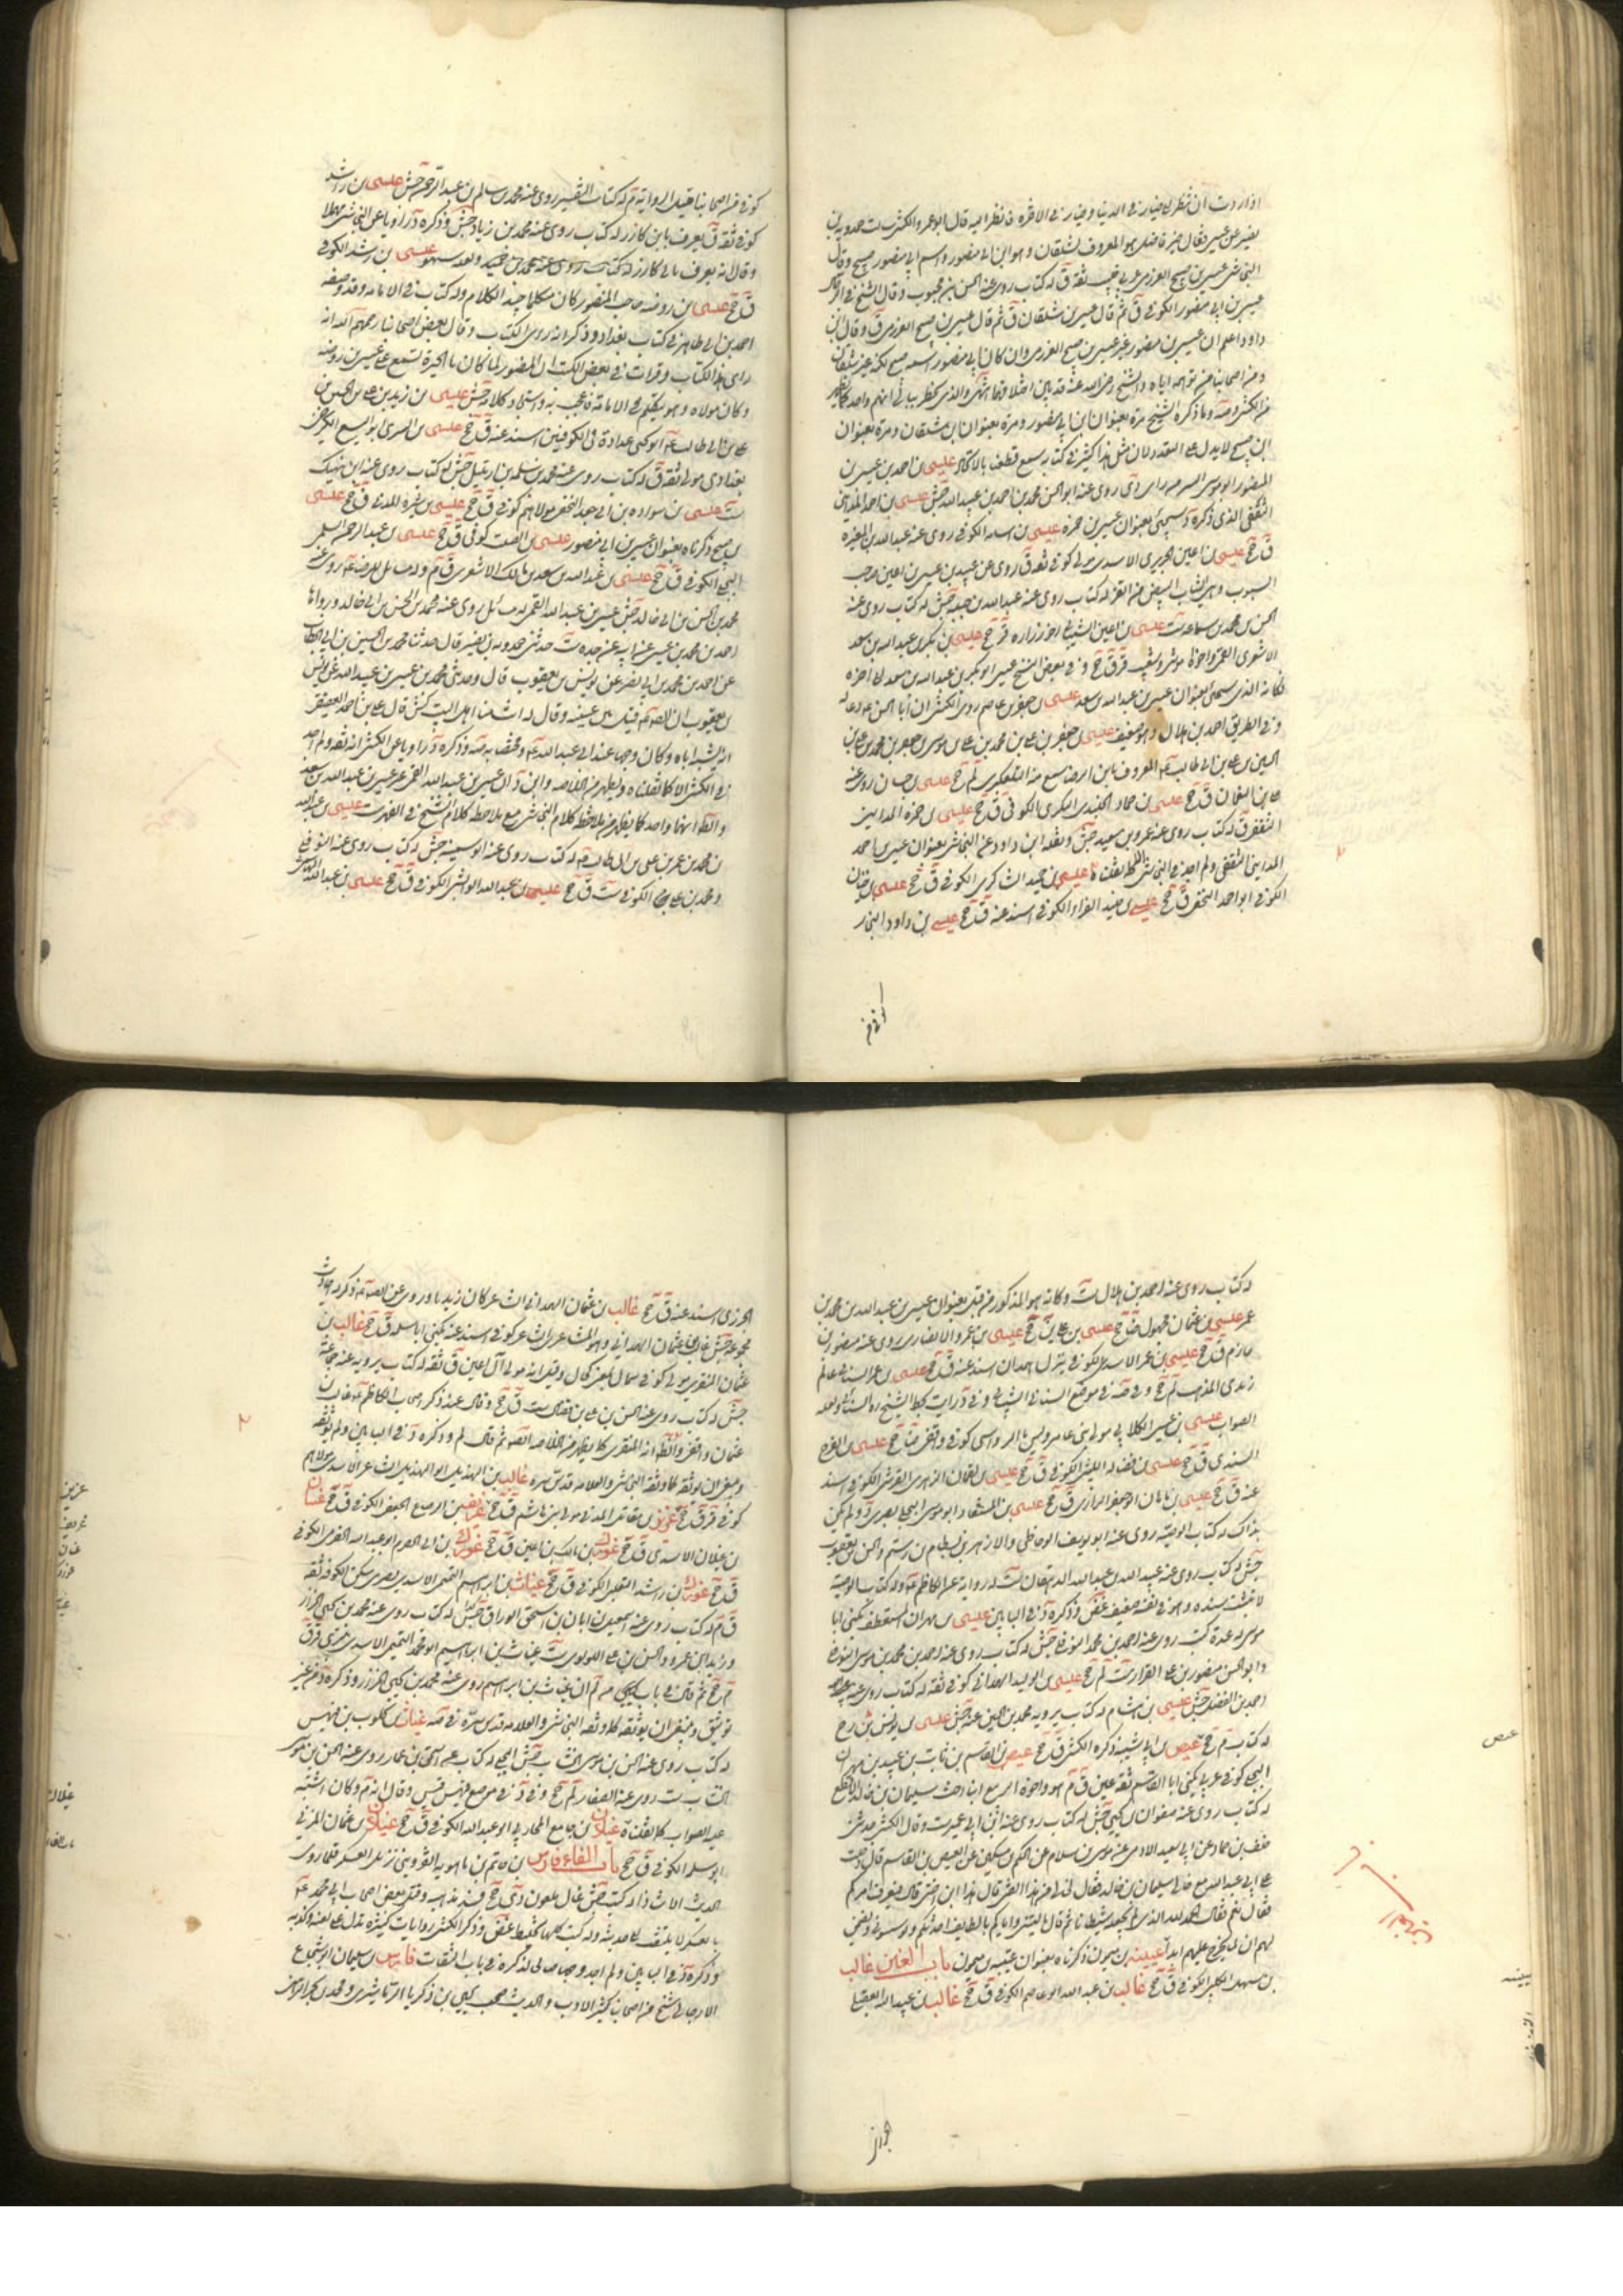 اذا اردت ان تنظر الى خيار في الدنيا وخيار في الاخرة فانظر اليه قال ابو عمرو الكشي سالت حمدويه بن
نصير عن عيسى فقال خير فاضل هو المعروف بشلقان وهو ابن ابي منصور واسم ابي منصور صبيح وقال
النجاشي عيسى بن صبيح العرزمي عربي صليب ثقة ق له كتاب روى عنه الحسن بن محبوب وقال الشيخ في
عيسى بن ابي منصور الكوفي ق ثم قال عيسى بن شلقان ق ثم قال عيسى بن صبيح العرزمي ق وقال ابن
داود اعلم ان عيسى بن منصور غير عيسى بن صبيح العرزمي وان كان ابي منصور اسمه صبيح لكنه غير شلقان
ومن اصحابنا من توهمه اياه والشيخ رضي الله عنه قد بين اختلافهما انتهى والذي يخطر ببالي انهم واحد
وما ذكره الشيخ مرة بعنوان ابن ابي منصور ومرة بعنوان ابن شلقان ومرة بعنوان
ابن صبيح لا يدل على التعدد لان مثل هذا كثير في كتابه عيسى بن احمد بن عيسى بن
المنصور ابو موسى السر من راى دى روى عنه ابو الحسن محمد بن احمد بن عبيد الله جش عيسى بن احمد المدايني
الثقفي الذي ذكره د سيجئ بعنوان عيسى بن حمزة عيسى بن اسد الكوفي روى عنه عبد الله بن المغيرة
ق جخ عيسى بن اعين الجريري الاسدي مولى كوفي ثقة ق روى عن عبيد بن عيسى بن اعين
له كتاب روى عنه عبد الله بن جبلة جش له كتاب روى عنه
الحسن بن محمد بن سماعة ست عيسى بن اعين الشيباني اخو زرارة ق جخ عيسى بن بكر بن عبد الله بن سعد
الاشعري القمي واخوه موسى وشعيب ق جخ وفي بعض النسخ عيسى ابو بكر بن عبد الله بن سعد
فكانه الذي سيجئ بعنوان عيسى بن عبد الله بن سعد عيسى بن جعفر بن عاصم روى الكشي ان ابا الحسن ع دعا له
وفي الطريق احمد بن هلال وهو ضعيف عيسى بن جعفر بن علي بن محمد بن علي بن موسى بن جعفر بن محمد بن علي بن
الحسين بن علي بن ابي طالب ع المعروف بابن الرضا سمع منه التلعكبري لم جخ عيسى بن حيان روى عنه
علي بن النعمان ق جخ عيسى بن حماد اليشكري الكوفي ق جخ عيسى بن حمزة المدايني
الثقفي ق له كتاب روى عنه عمرو بن سعيد جش ونقله ابن داود عن النجاشي بعنوان عيسى بن احمد
المدايني الثقفي ولم اجد في النجاشي الا كما نقلت عيسى بن حميد الشاكري الكوفي ق جخ عيسى بن حنان
الكوفي ابو احمد النخعي ق جخ عيسى بن خليد الفراء الكوفي اسند عنه ق جخ عيسى بن داود النجار
كوفي من
كوفي من اصحابنا قليل الرواية م له كتاب التفسير روى عنه محمد بن سالم بن عبد الرحمن جش عيسى بن راشد
كوفي ثقة ق يعرف بابن كازر له كتاب روى عنه محمد بن زياد جش وذكره د راويا عن النجاشي مهملا
وقال انه يعرف بابي كازر له كتاب روى عنه محمد بن ولعله سهو عيسى بن رشد الكوفي
ق جخ عيسى بن روضة حاجب المنصور كان متكلما جيد الكلام وله كتاب في الامامة وقد وصفه
احمد بن ابي طاهر في كتاب بغداد وذكر انه راى الكتاب وقال بعض اصحابنا رحمهم الله انه
راى هذا الكتاب وقرات في بعض الكتب ان المنصور لما كان بالحيرة تسمع على عيسى بن روضة
وكان مولاه وهو يتكلم في الامامة فاعجب به واستجاد كلامه جش عيسى بن زيد بن علي بن الحسين بن
علي بن ابي طالب ع ابو يحيى عداده في الكوفيين اسند عنه ق جخ عيسى بن السري ابو اليسع الكرخي
بغدادي مولى ثقة ق له كتاب روى عنه محمد بن سلمة بن ارتبيل جش له كتاب روى عنه ابن نهيك
ست عيسى بن سوادة بن ابي الجعد النخعي مولاهم كوفي ق جخ عيسى بن شبرة المدني ق جخ عيسى
بن صبيح ذكرناه بعنوان عيسى بن ابي منصور عيسى بن الصلت كوفي ق جخ عيسى بن عبد الرحمن السلمي
البجلي الكوفي ق جخ عيسى بن عبد الله بن سعد بن مالك الاشعري ق م وله مسائل للرضا ع روى عنه
محمد بن الحسن بن ابي خالد جش عيسى بن عبد الله القمي له مسائل روى عنه محمد بن الحسن بن ابي خالد ورواها
احمد بن محمد بن عيسى عن ابيه عن جده ست حدثني حمدويه بن نصير قال حدثنا محمد بن الحسين بن ابي الخطاب
عن احمد بن محمد بن ابي نصر عن يونس بن يعقوب قال وحدثني محمد بن عيسى بن عبيد الله عن يونس
بن يعقوب ان الصادق ع قبل بين عينيه وقال له انت منا اهل البيت كش قال علي بن احمد العقيقي
انه يشبه اباه وكان وجها عند ابي عبد الله ع ومختصا به صه وذكره د راويا عن الكشي انه ثقة ولم اجد
في الكشي الا كما نقلناه ويظهر من الخلاصة وابن داود ان عيسى بن عبد الله القمي غير عيسى بن عبد الله بن سعد
والظاهر انهما واحد كما يظهر من ملاحظة كلام النجاشي مع ملاحظة كلام الشيخ في الفهرست عيسى بن عبد الله
بن محمد بن عمر بن علي بن ابي طالب ع له كتاب روى عنه ابو سمينة جش له كتاب روى عنه النوفلي
ومحمد بن علي الكوفي ست ق جخ عيسى بن عبد الله ابو البشر الكوفي ق جخ عيسى بن عبد الله
له كتاب روى عنه احمد بن هلال ست وكانه هو المذكور من قبل بعنوان عيسى بن عبد الله بن محمد بن
عمر عيسى بن عثمان مجهول جخ عيسى بن علي جخ عيسى بن عمرو الانصاري روى عنه منصور بن
حازم ق جخ عيسى بن عمر الاسدي الكوفي ينزل همدان اسند عنه ق جخ عيسى بن عمر السناني عالم
زيدي المذهب لم جخ وفي صه في موضع السناني الشيباني وفي د رايت بخط الشيخ ره السناني ولعله
الصواب عيسى بن عيسى الكلابي مولى بني عامر وليس بالرواسي كوفي واقفي جخ عيسى بن الفرج
السندي ق جخ عيسى بن فضالة الليثي الكوفي ق جخ عيسى بن لقمان الزهري القرشي الكوفي اسند
عنه ق جخ عيسى بن ماهان ابو جعفر الرازي ق جخ عيسى بن المستفاد ابو موسى البجلي بصري د ولم يكن
بذاك له كتاب الوصية روى عنه ابو يوسف الوحاظي والازهر بن بسطام بن رستم والحسن بن يعقوب
جش له كتاب روى عنه عبيد الله بن عبد الله الدهقان ست له رواية عن الكاظم ع وله كتاب الوصية
لا يثبت سنده وهو في نفسه ضعيف غض وذكره د في البابين عيسى بن مهران المستعطف يكنى ابا
موسى له عدة كتب روى عنه احمد بن محمد النوفلي جش له كتاب روى عنه احمد بن محمد بن موسى النوفلي
وابو الحسن منصور بن علي القزاز ست لم جخ عيسى بن الوليد الهمداني كوفي ثقة له كتاب روى عنه
احمد بن الفضل جش عيسى بن هشام له كتاب يرويه محمد بن الحسين عنه جش عيسى بن يونس بزرج
له كتاب م جخ عيص بن ابي شيبة ذكره الكشي ق جخ عيص بن القاسم بن ثابت بن عبيد بن مهران
البجلي كوفي عربي يكنى ابا القاسم ثقة عين ق م هو واخوه الربيع ابنا اخت سليمان بن خالد الاقطع
له كتاب روى عنه صفوان بن يحيى جش له كتاب روى عنه ابن ابي عمير ست وقال الكشي حدثني
خلف بن حماد عن ابي سعيد الادمي عن موسى بن سلام عن الحكم بن مسكين عن العيص بن القاسم قال دخلت
على ابي عبد الله مع خالي سليمان بن خالد فقال لخالي من هذا الفتى قال هذا ابن اختي قال فيعرف امركم
فقال نعم فقال الحمد لله الذي لم يجعله شيطانا ثم قال يا ليتني واياكم بالطائف احدثكم وتونسوني ونضمن
لهم ان لا نخرج عليهم ابدا عيينة بن ميمون ذكرناه بعنوان عتيبة بن ميمون باب الغين غالب
بن سهيل الكوفي ق جخ غالب بن عبد الله ابو عاصم الكوفي ق جخ غالب بن عبيد الله العقيلي
الجزري
عيص
عيينه
الجزري اسند عنه ق جخ غالب بن عثمان الهمداني الشاعر كان زيديا وروى عن الصادق ع ذكر له احاديث
مجموعة جش غالب بن عثمان الهمداني وهو المشاعري الشاعر كوفي اسند عنه يكنى ابا سلمة ق جخ غالب بن
عثمان المنقري مولى كوفي سمال بمعنى كحال وقيل انه مولى آل اعين ق ثقة له كتاب يرويه عنه جماعة
جش له كتاب روى عنه الحسن بن علي بن فضال ست ق جخ وقال عند ذكر اصحاب الكاظم ع غالب بن
عثمان واقفي والظاهر انه المنقري كما يظهر من الخلاصة ايضا ثم قال لم وذكره د في البابين ولم يوثقه
وينبغي ان يوثقه كما وثقه النجاشي والعلامة قدس سره غالب بن الهذيل ابو الهذيل الشاعر الاسدي مولاهم
كوفي قر ق جخ غزيز بن مقاتل المدني مولى بني هاشم ق جخ بن الربيع الجعفي الكوفي ق جخ غسان
بن غيلان الاسدي ق جخ غورك بن مالك بن اعين ق جخ غورك بن ابي الحصرم ابو عبد الله الحضرمي الكوفي
ق جخ غورك بن راشد التغلبي الكوفي ق جخ غياث بن ابراهيم التميمي الاسدي بصري سكن الكوفة ثقة
ق م له كتاب روى عنه اسمعيل بن ابان بن اسحق الوراق جش له كتاب روى عنه محمد بن يحيى الخزاز
وزيدان بن عمر والحسن بن علي اللؤلؤي ست غياث بن ابراهيم ابو محمد التميمي الاسدي قر ق
م جخ ثم قال في باب لم ان غياث بن ابراهيم روى عنه محمد بن يحيى الخزاز وذكره د من غير
توثيق وينبغي ان يوثقه كما وثقه النجاشي والعلامة قدس سره في صه غياث بن كلوب بن فيهس
له كتاب روى عنه الحسن بن موسى الخشاب جش البجلي له كتاب عن اسحق بن عمار روى عنه الحسن بن موسى
الخشاب ست روى عنه الصفار لم جخ وفي د في موضع فيهس قيس وقال انه م وكان اشتبه
عليه الصواب كما نقلناه غيلان بن جامع المحاربي ابو عبد الله الكوفي ق جخ غيلان بن عثمان المزني
ابو سلمة الكوفي ق جخ باب الفاء فارس بن حاتم بن ماهويه القزويني نزيل العسكر قلما روى
الحديث الا شاذا له كتب جش غال ملعون دى جخ فسد مذهبه وقتله بعض اصحاب ابي محمد ع
بالعسكر لا يلتفت الى حديثه وله كتب كلها تخليط غض وذكر الكشي روايات كثيرة تدل على لعنه وكذبه
وذكره د في البابين ولم اجد وجها صالحا لذكره في باب الثقات فارس بن سليمان ابو شجاع
الارجاني شيخ من اصحابنا كثير الادب والحديث صحب يحيى بن زكريا الترماشيزي ومحمد بن بحر الرهني
غزيز
غسان
غورك
غيلان
باب الفاء